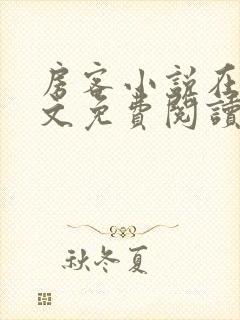 房客小说在
文免費閱讀
秋冬夏